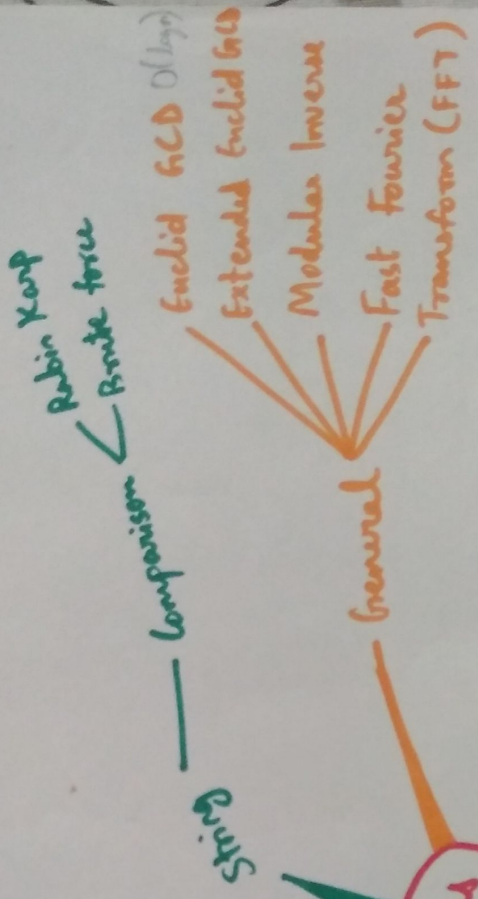 String
Comparison
Rabin Karp
Brute force
General
Euclid GCD O(logn)
Extended Euclid GCD
Modular Inverse
Fast Fourier
Transform (FFT)
A